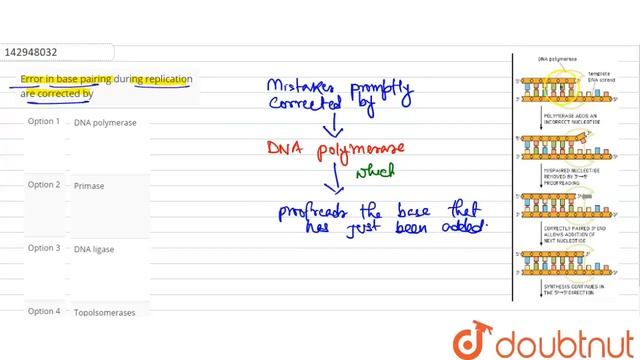 142948032
Error in base pairing during replication
are corrected by
Option 1 DNA polymerase
Option 2 Primase
Option 3 DNA ligase
Option 4 Topolsomerases
Mistakes promptly
corrected by
DNA polymerase
which
proofreads the base that
has just been added.
DNA polymerase
template
DNA strand
POLYMERASE ADDS AN
INCORRECT NUCLEOTIDE
MISPAIRED NUCLEOTIDE
REMOVED BY 3'→5'
PROOFREADING
CORRECTLY PAIRED 3' END
ALLOWS ADDITION OF
NEXT NUCLEOTIDE
SYNTHESIS CONTINUES IN
THE 5'→3' DIRECTION
doubtnut